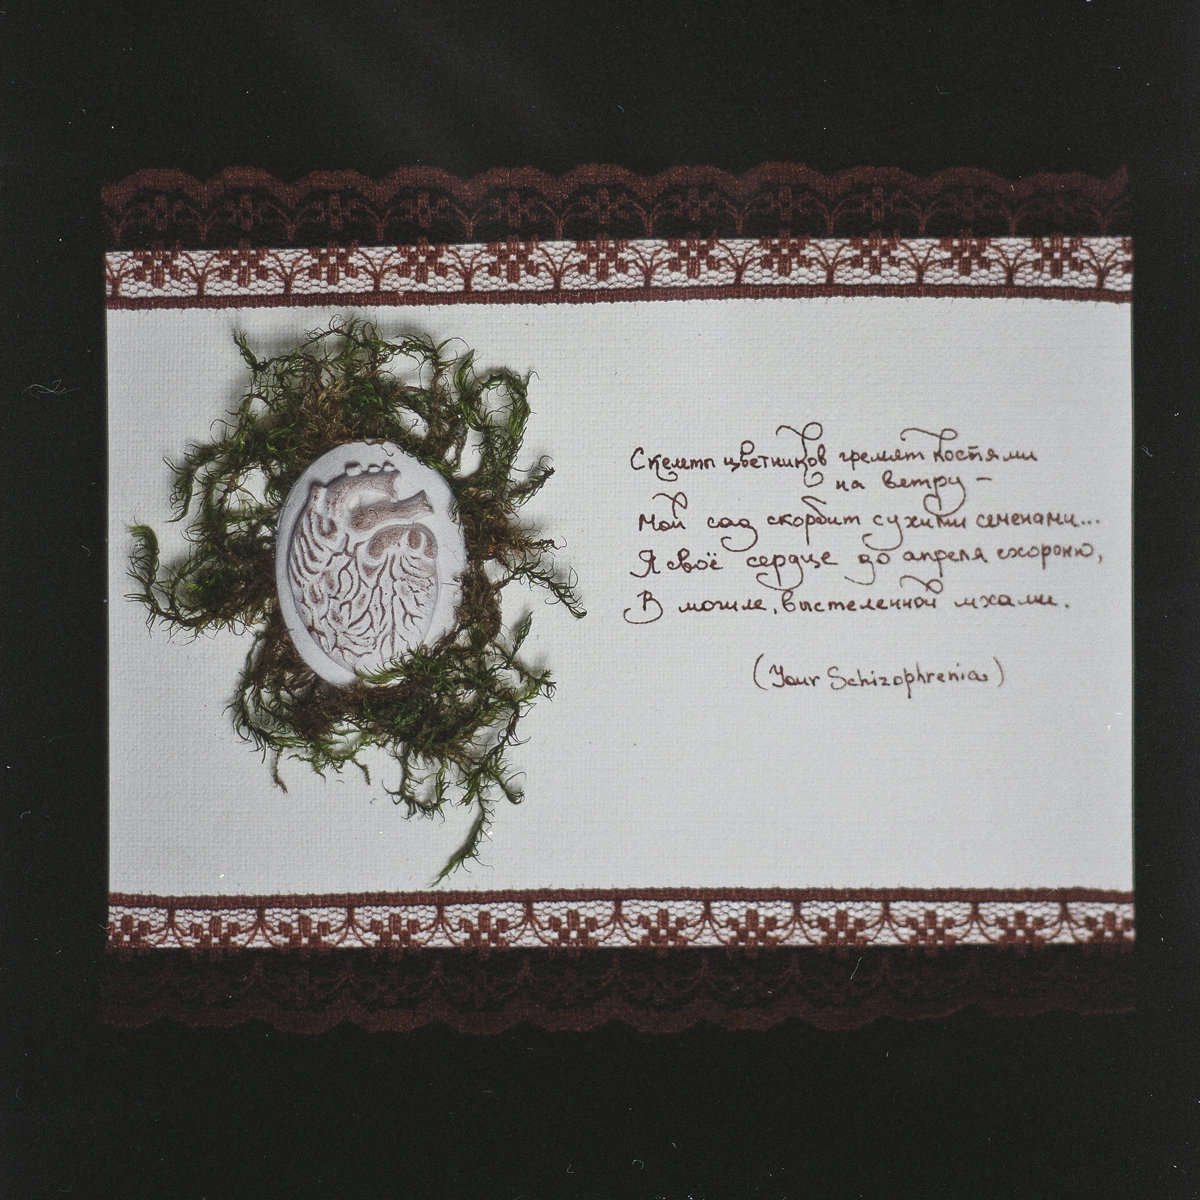 Скелеты цветников гремят костями
на ветру –
Мой сад скорбит сухими семенами...
Я своё сердце до апреля схороню,
В могиле, выстеленной мхами.
(Your Schizophrenia)